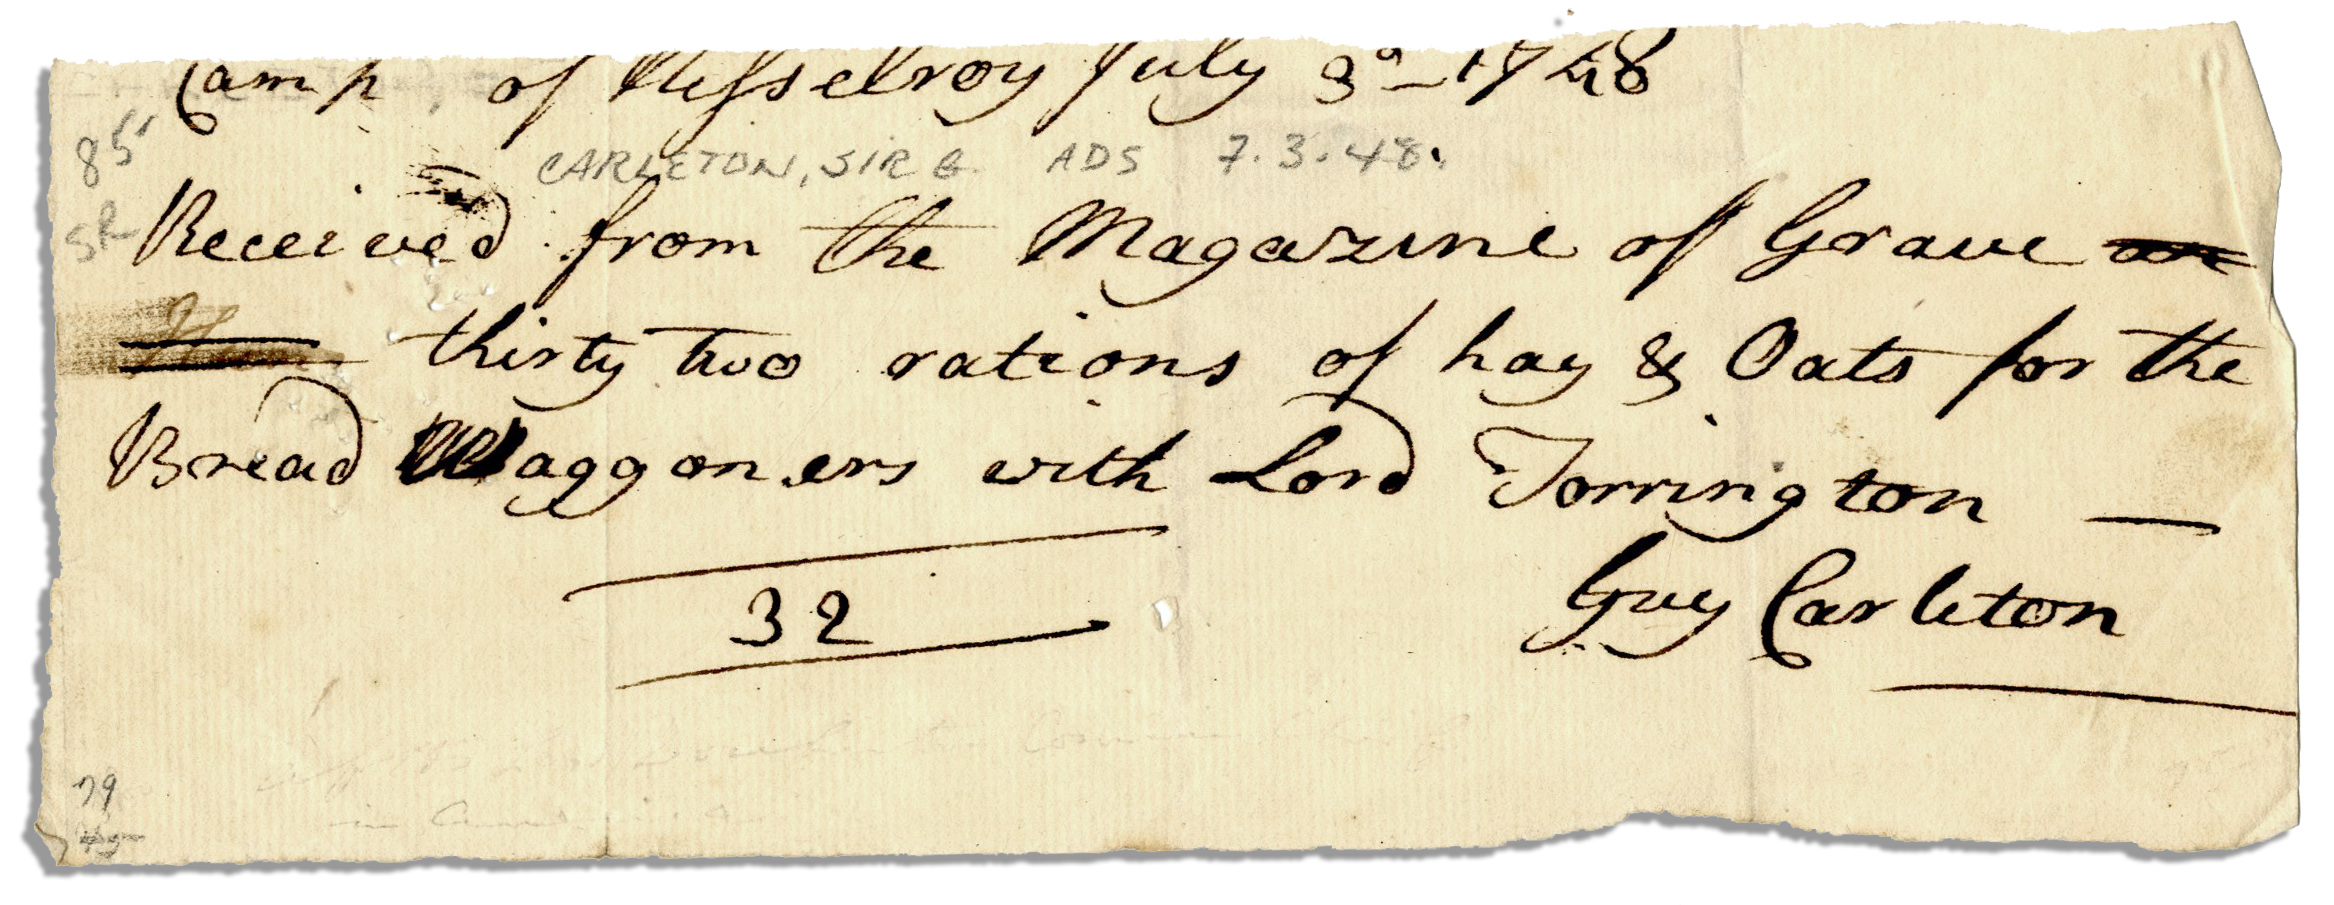 Camp, of Nesselroy July 3d - 1748
85
CARLETON, SIR G. ADS 7.3.48.
SR
Received from the Magazine of Grave
thirty two rations of hay & Oats for the
Bread Waggoners with Lord Torrington —
32
Guy Carleton
79